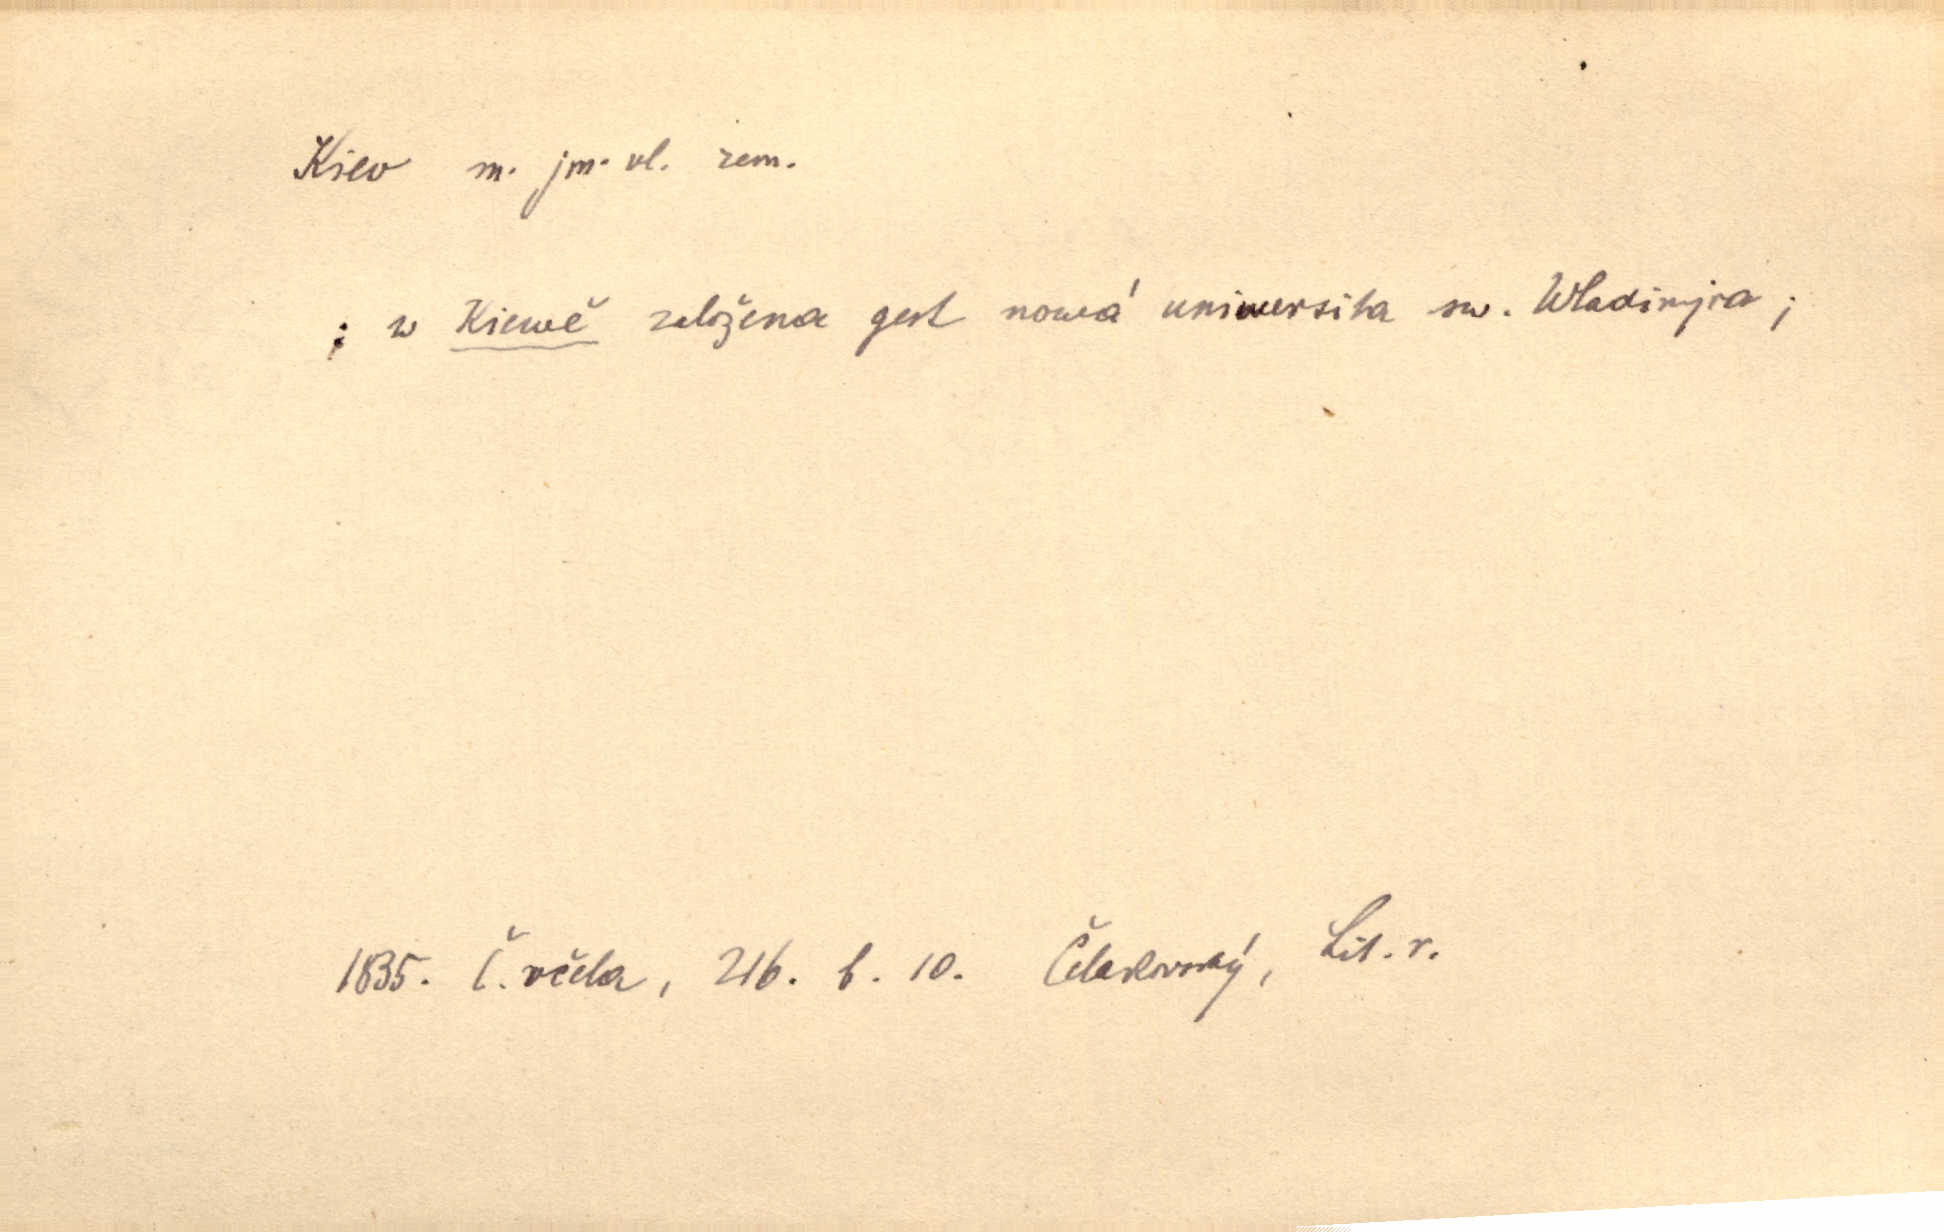 Kiev m. jm. vl. zem.
; w Kiewě založena gest nowá uniwersita sw. Wladimjra ;
1835. Č. včela, 216. b. 10. Čelakovský, Lit. r.